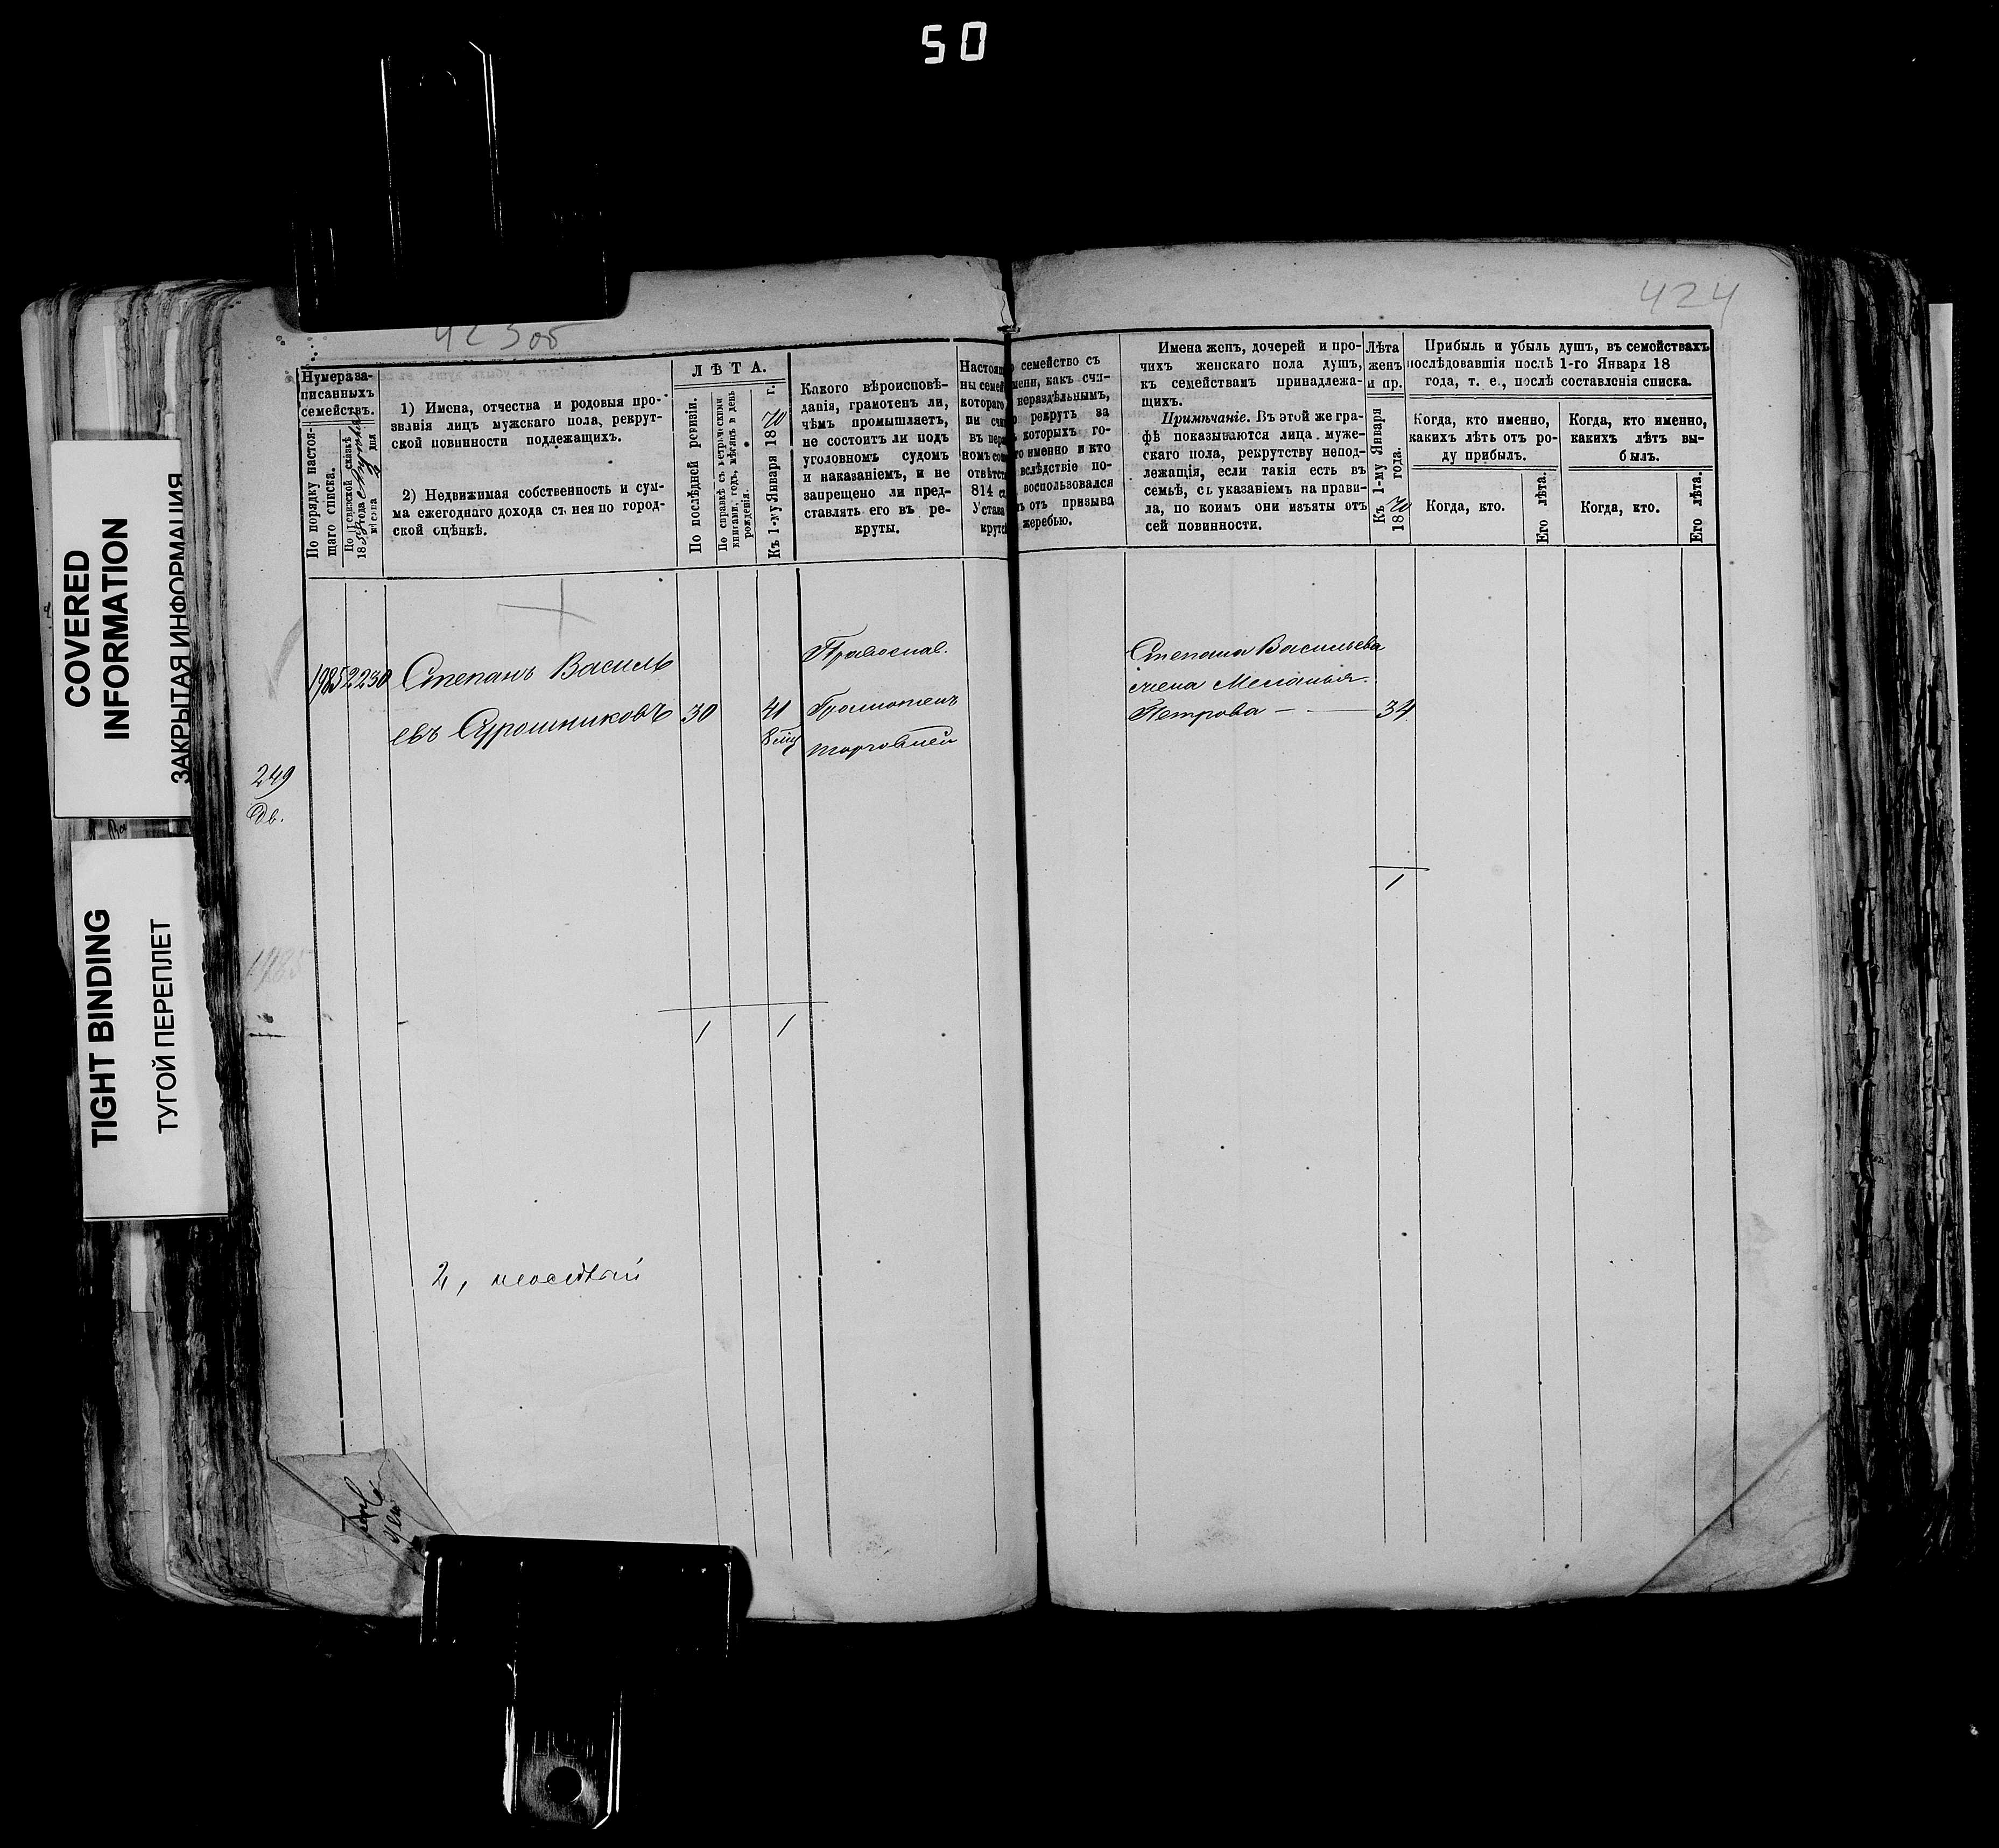 50
COVERED
INFORMATION
ЗАКРЫТАЯ ИНФОРМАЦИЯ
TIGHT BINDING
ТУГОЙ ПЕРЕПЛЕТ
423об
424
Нумера за-
писанныхъ
семействъ.
По порядку настоя-
щаго списка.
По ревизской сказкѣ
мѣсяца дня
1) Имена, отчества и родовыя про-
званія лицъ мужскаго пола, рекрут-
ской повинности подлежащихъ.
2) Недвижимая собственность и сум-
ма ежегоднаго дохода съ нея по город-
ской оцѣнкѣ.
ЛѢТА.
По послѣдней ревизіи.
По справкѣ съ метрическими
книгами, годъ, мѣсяцъ и день
рожденія.
Къ 1-му Января 1870 г.
Какого вѣроисповѣ-
данія, грамотенъ ли,
чѣмъ промышляетъ,
не состоитъ ли подъ
уголовномъ судомъ
и наказаніемъ, и не
запрещено ли пред-
ставлять его въ ре-
круты.
Настоящ
ны семей
котораго
ли счи
въ пер
номъ со
отвѣтст
814 ст
Устава
крутс
семейство съ
мени, какъ счи-
нераздѣльнымъ,
рекрутъ за
которыхъ го-
то именно и кто
вслѣдствіе по-
воспользовался
отъ призыва
жеребью.
Имена женъ, дочерей и про-
чихъ женскаго пола душъ,
къ семействамъ принадлежа-
щихъ.
Примѣчаніе. Въ этой же гра-
фѣ показываются лица муже-
скаго пола, рекрутству непод-
лежащія, если такія есть въ
семьѣ, съ указаніемъ на прави-
ла, по коимъ они изъяты отъ
сей повинности.
Лѣта
женъ
и пр.
Къ 1-му Января
1870 года.
Прибыль и убыль душъ, въ семействахъ
послѣдовавшія послѣ 1-го Января 18
года, т. е., послѣ составленія списка.
Когда, кто именно,
какихъ лѣтъ отъ ро-
ду прибылъ.
Когда, кто именно,
какихъ лѣтъ вы-
былъ.
Когда, кто.
Его лѣта.
Когда, кто.
Его лѣта.
1985 2230 Степанъ Василь
евъ Сурошниковъ 30 41
Православ.
Грамотенъ
торговлей
Степана Васильева
жена Меланья
Петрова — — 34
249
Дв.
1
1985
1 1
2, неоседлый